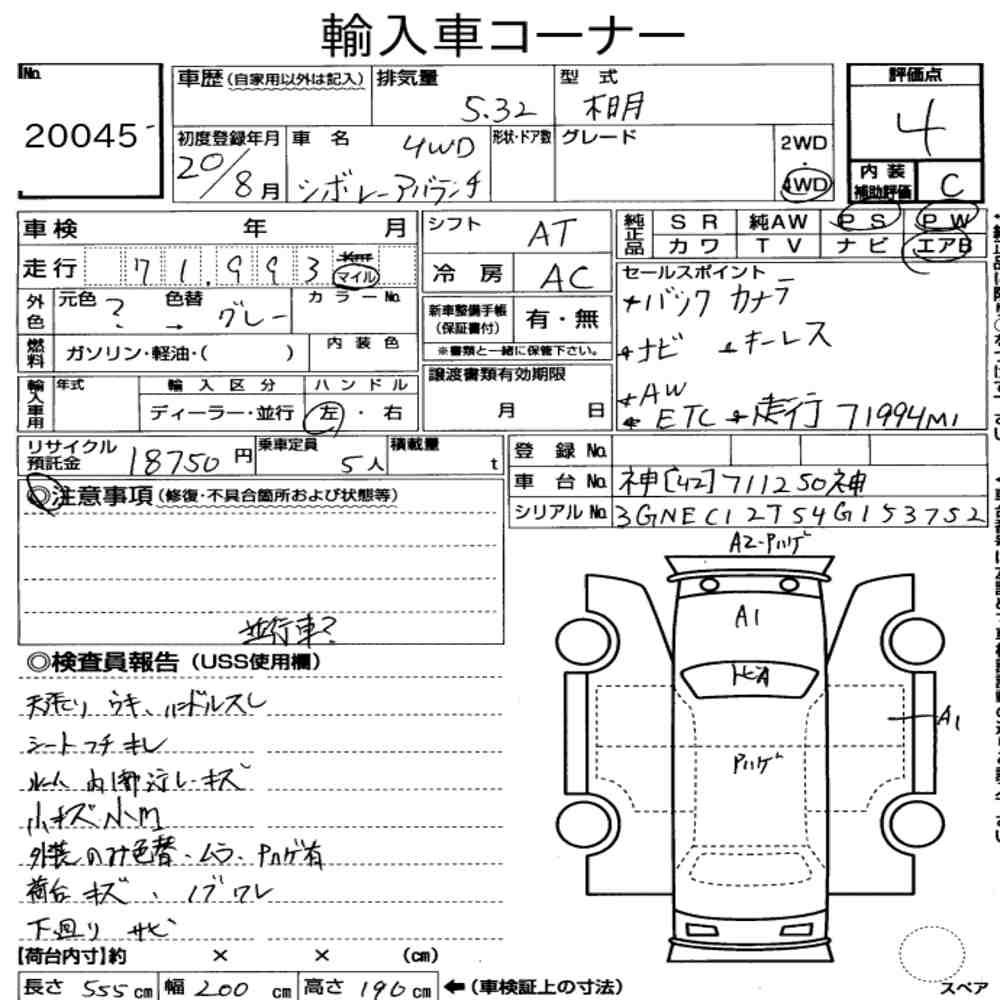 輸入車コーナー
No.
20045
車歴 (自家用以外は記入)
排気量
5.32
型 式
不明
評価点
4
初度登録年月
20/8月
車 名
4WD
シボレーアバランチ
形状・ドア数
グレード
2WD
・
4WD
内 装
補助評価
C
車検 年 月
走行 71,993 Km
マイル
外色
元色 ?
色替 → グレー
カラーNo.
燃料
ガソリン・軽油・( )
内 装 色
輸入車用
年式
輸 入 区 分
ディーラー・並行
ハ ン ド ル
左 ・ 右
シフト
AT
冷 房
AC
新車整備手帳
(保証書付)
有・無
※書類と一緒に保管下さい。
譲渡書類有効期限
月 日
純正品
S R 純AW P S P W
カワ T V ナビ エアB
セールスポイント
バック カメラ
ナビ キーレス
AW
ETC 走行 71994MI
リサイクル
預託金 18750 円
乗車定員
5人
積載量
t
登 録 No.
車 台 No. 神[42]711250神
シリアルNo. 3GNEC12T54G153752
◎注意事項 (修復・不具合箇所および状態等)
並行車?
◎検査員報告 (USS使用欄)
天張り ウキ、ハンドルスレ
シート フチ キレ
ルーム 内部汚レ・キズ
小キズ小凹
外装のみ色替・ムラ、Pハゲ有
荷台 キズ、ノブワレ
下廻り サビ
A2-Pハゲ
A1
トビA
A1
Pハゲ
【荷台内寸】約 × × (cm)
長さ 555 cm 幅 200 cm 高さ 190 cm ←(車検証上の寸法)
スペア